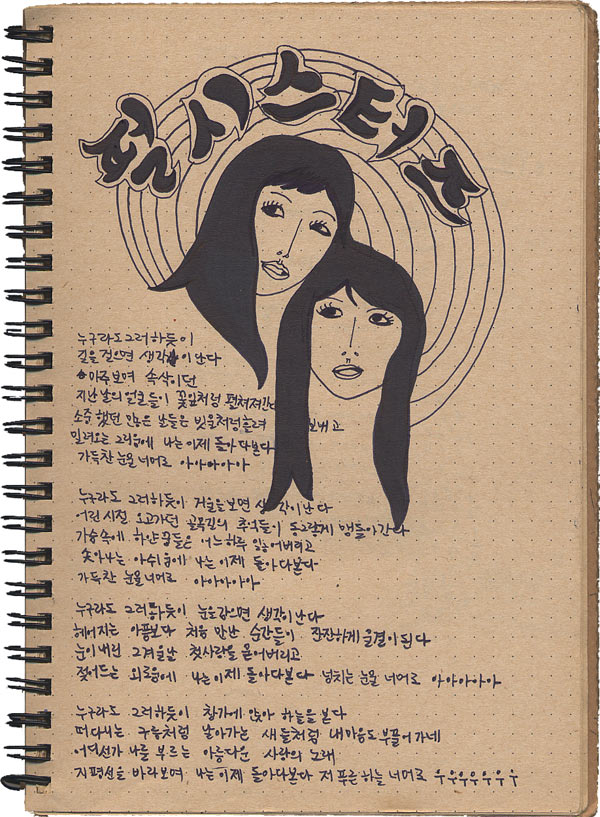 펄시스터즈
누구라도 그러하듯이
길을 걸으면 생각이 난다
마주보며 속삭이던
지난날의 얼굴들이 꽃잎처럼 펼쳐져간다
소중했던 많은 날들을 빗물처럼 흘려 보내고
밀려오는 그리움에 나는 이제 돌아다본다
가득찬 눈물 너머로 아아아아아
누구라도 그러하듯이 거울을 보면 생각이 난다
어린시절 오고가던 골목길의 추억들이 동그랗게 맴돌아간다
가슴속에 하얀 꿈들은 어느 하루 잃어버리고
솟아나는 아쉬움에 나는 이제 돌아다본다
가득찬 눈물 너머로 아아아아아
누구라도 그러하듯이 눈을 감으면 생각이 난다
헤어지는 아픔보다 처음 만난 순간들이 잔잔하게 물결이 된다
눈이 내린 그 겨울날 첫사랑을 묻어버리고
젖어드는 외로움에 나는 이제 돌아다본다 넘치는 눈물 너머로 아아아아아
누구라도 그러하듯이 창가에 앉아 하늘을 본다
떠다니는 구름처럼 날아가는 새들처럼 내마음도 부풀어 가네
어디선가 나를 부르는 아름다운 사랑의 노래
지평선을 바라보며 나는 이제 돌아다본다 저 푸른 하늘 너머로 우우우우우우우